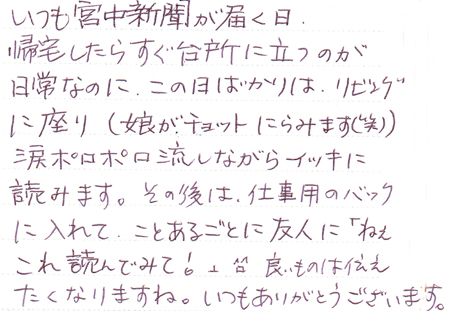 いつも宮中新聞が届く日.
帰宅したらすぐ台所に立つのが
日常なのに、この日ばかりは、リビング
に座り(娘がチョットにらみます(笑))
涙ポロポロ流しながらイッキに
読みます。その後は、仕事用のバック
に入れて、ことあるごとに友人に「ねぇ
これ読んでみて! 良いものは伝え
たくなりますね。いつもありがとうございます。